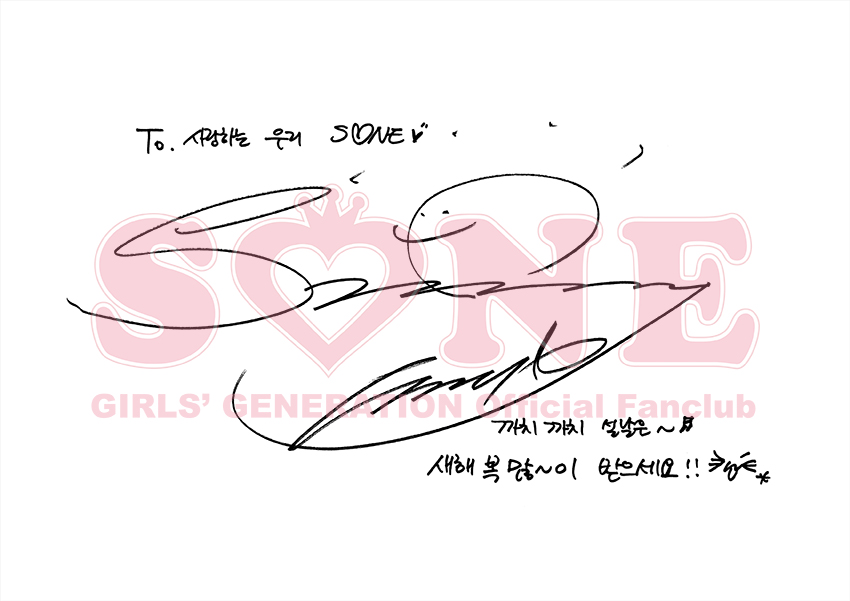 To. 사랑하는 우리 S♡NE♡
S♡NE
GIRLS' GENERATION Official Fanclub
까치 까치 설날은~♬
새해 복 많~이 받으세요!!